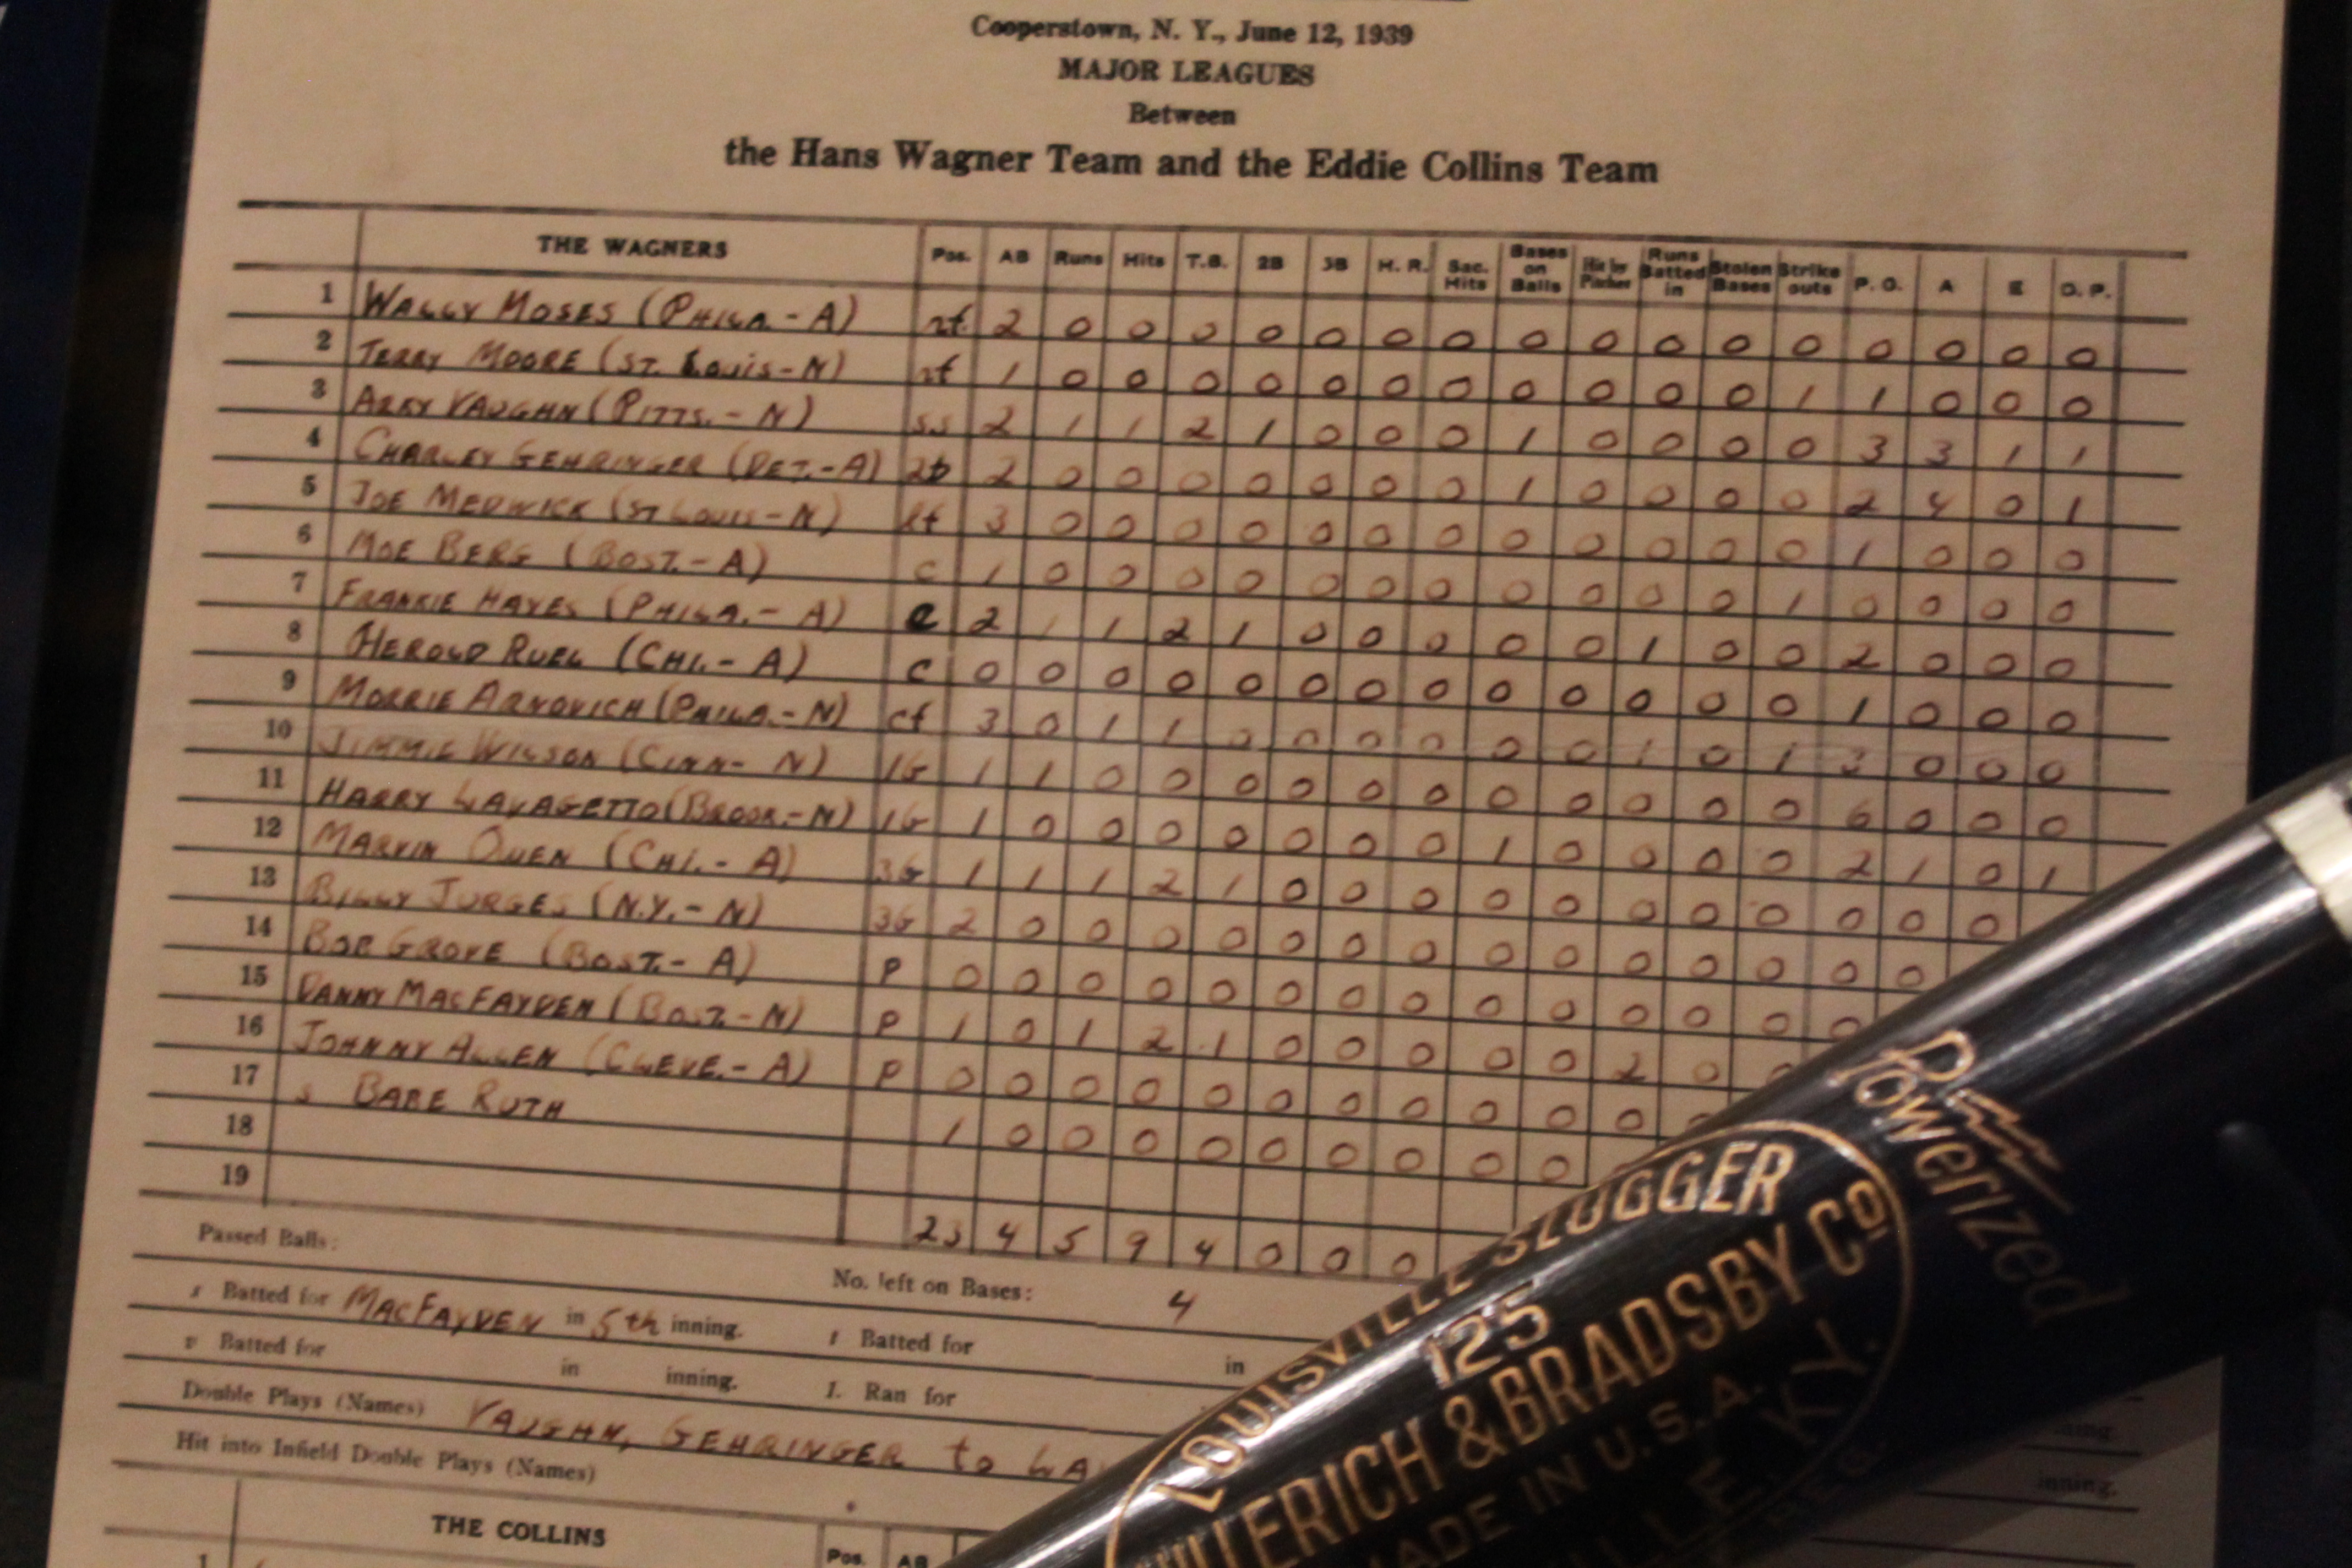 Cooperstown, N. Y., June 12, 1939
MAJOR LEAGUES
Between
the Hans Wagner Team and the Eddie Collins Team
THE WAGNERS Pos. AB Runs Hits T.B. 2B 3B H. R. Sac. Hits Bases on Balls Hit by Pitcher Runs Batted in Stolen Bases Strike outs P. O. A E D. P.
1 WALLY MOSES (PHILA.-A) rf. 2 0 0 0 0 0 0 0 0 0 0 0 0 0 0 0 0
2 TERRY MOORE (ST. LOUIS-N) rf 1 0 0 0 0 0 0 0 0 0 0 0 1 1 0 0 0
3 ARKY VAUGHN (PITTS.-N) ss 2 1 1 2 1 0 0 0 1 0 0 0 0 3 3 1 1
4 CHARLEY GEHRINGER (DET.-A) 2b 2 0 0 0 0 0 0 0 1 0 0 0 0 2 4 0 1
5 JOE MEDWICK (ST LOUIS-N) lf 3 0 0 0 0 0 0 0 0 0 0 0 0 1 0 0 0
6 MOE BERG (BOST.-A) c 1 0 0 0 0 0 0 0 0 0 0 0 1 0 0 0 0
7 FRANKIE HAYES (PHILA.-A) c 2 1 1 2 1 0 0 0 0 0 1 0 0 2 0 0 0
8 HEROLD RUEL (CHI.-A) c 0 0 0 0 0 0 0 0 0 0 0 0 0 1 0 0 0
9 MORRIE ARNOVICH (PHILA.-N) cf 3 0 1 1 0 0 0 0 0 0 1 0 1 3 0 0 0
10 JIMMIE WILSON (CINN-N) 1b 1 1 0 0 0 0 0 0 0 0 0 0 0 6 0 0 0
11 HARRY LAVAGETTO (BROOK.-N) 1b 1 0 0 0 0 0 0 0 1 0 0 0 0 2 1 0 1
12 MARVIN OWEN (CHI.-A) 3b 1 1 1 2 1 0 0 0 0 0 0 0 0 0 0 0
13 BILLY JURGES (N.Y.-N) 3b 2 0 0 0 0 0 0 0 0 0 0 0 0 0 0
14 BOB GROVE (BOST.-A) P 0 0 0 0 0 0 0 0 0 0 0 0 0 0
15 DANNY MACFAYDEN (BOST.-N) P 1 0 1 2 1 0 0 0 0 0 2 0
16 JOHNNY ALLEN (CLEVE.-A) P 0 0 0 0 0 0 0 0 0 0 0
17 s BABE RUTH 1 0 0 0 0 0 0 0 0 0
18
19
23 4 5 9 4 0 0 0
Passed Balls: No. left on Bases: 4
s Batted for MACFAYDEN in 5th inning. t Batted for in
v Batted for in inning. 1. Ran for
inning.
Double Plays (Names) VAUGHN, GEHRINGER to LA
inning.
Hit into Infield Double Plays (Names)
THE COLLINS Pos. AB
1
Powerized
LOUISVILLE SLUGGER
125
HILLERICH & BRADSBY Co
MADE IN U.S.A.